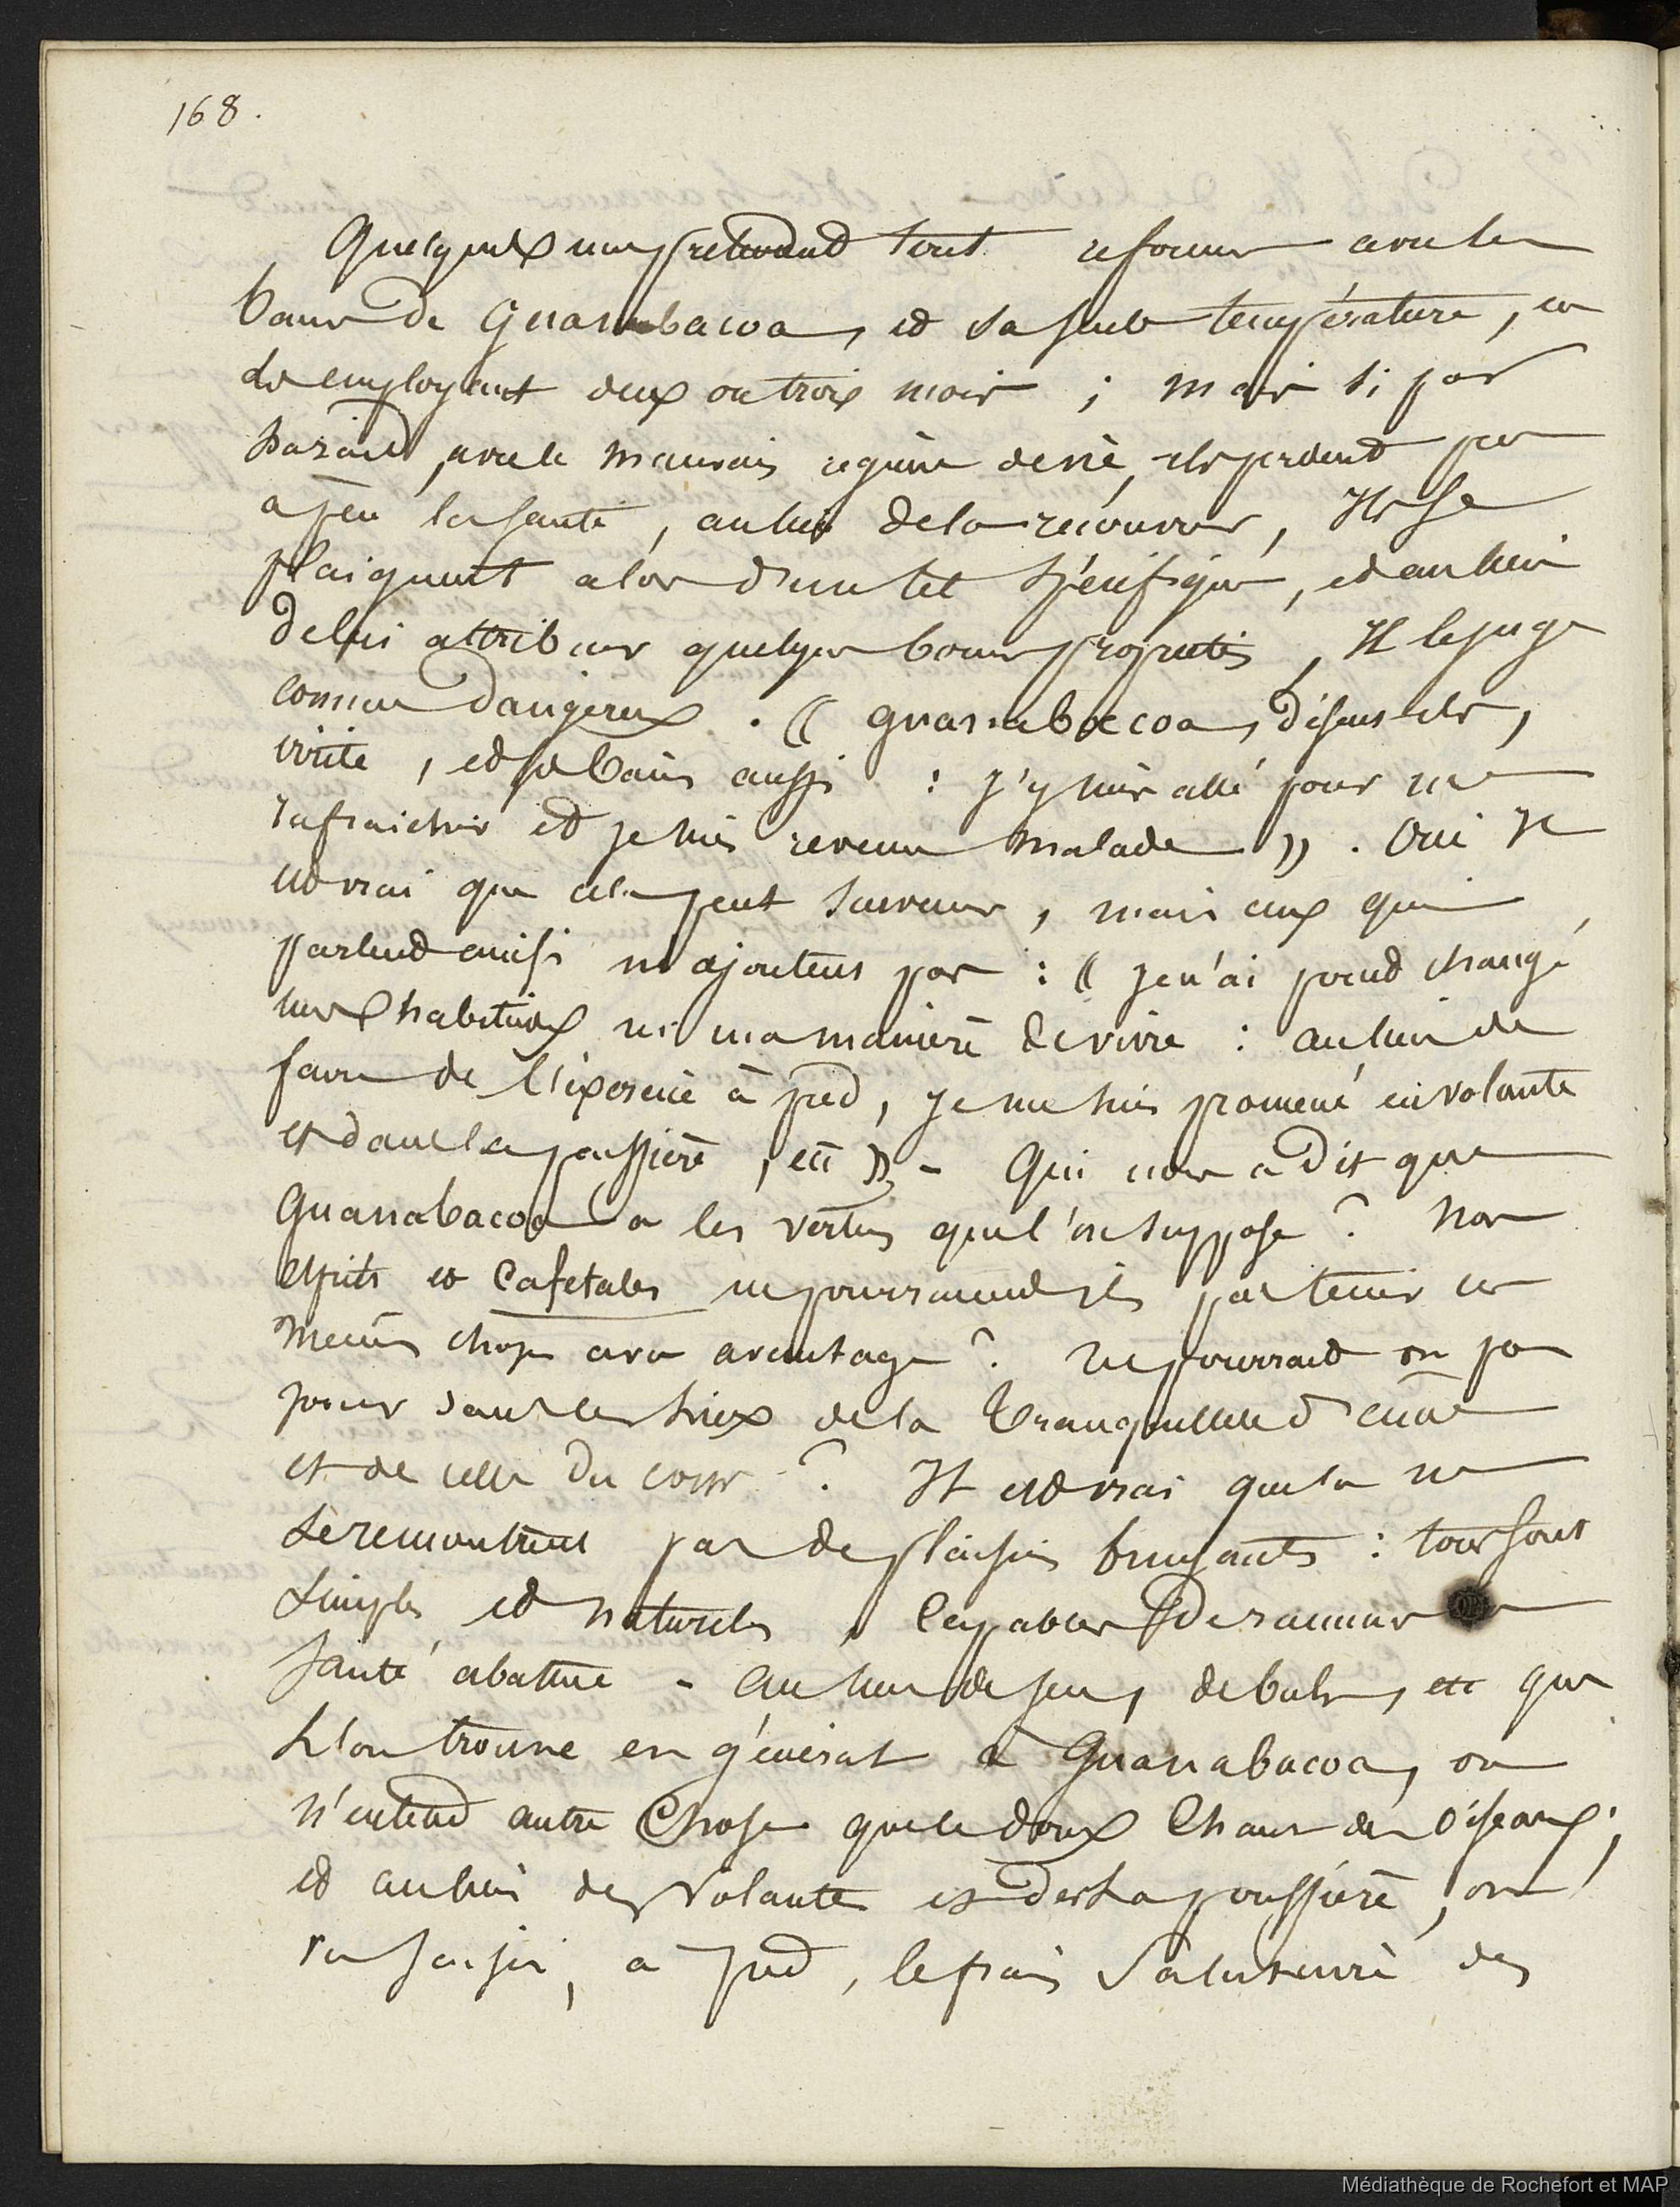 168.
Quelques uns prétendent tout reformer avec les
bains de Guanabacoa, et sa seule température, en
les employant deux ou trois mois ; mais si par
hasard, avec le mauvais régime de vie, ils perdent peu
a peu la santé, au lieu de la recouvrer, Ils se
plaignent alors d'un tel spécifique, et au lieu
de lui attribuer quelques bonnes propriétés, Il le juge
comme dangereux. (( guanabacoa, disent-ils,
irrite, et ses bains aussi : j'y suis allé pour me
rafraichir et je suis revenu malade )). Oui Il
est vrai que cela peut survenir, mais ceux qui
parlent ainsi n'ajoutent pas : (( je n'ai point changé
mes habitudes ni ma manière de vivre : au lieu de
faire de l'exercice à pied, je me suis promené en volante
et dans la poussière, etc )) - Qui nous a dit que
Guanabacoa a les vertus que l'on suppose ? Nos
et Cafetales ne pourraient ils pas tenir ces
mêmes choses avec avantage ? Ne pourrait on pas
jouir dans ces lieux de la tranquillité d'âme
et de celle du corps ? Il est vrai que la ne
se rencontrent pas de plaisirs bruyants : tous sont
simples, et naturels, Capables de ranimer la
santé abattue - au lieu de jeux, de bals, etc que
l'on trouve en général à Guanabacoa, on
n'entend autre Chose que le doux Chant des oiseaux ;
et au lieu des Volantes et de la poussière, on
a pied, le frais des
Médiathèque de Rochefort et MAP